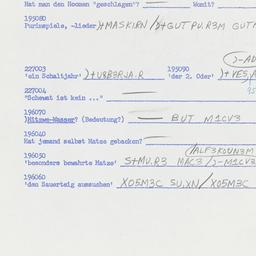 Hat man den Hooman "geschlagen"? Womit?
195080
Purimspiele, -lieder )+MASKIRN / )+GUT PUR3M GUT
227003 195090
'ein Schaltjahr' )+UBB3RJA.R 'der 2. Oder' )+VE5,
227004
"Schewat ist kein ..."
196070
)Mitzwe-Wasser? (Bedeutung?) BUT M1CV3
196040
Hat jemand selbst Matze gebacken?
196050
'besonders bewahrte Matze' S+MU.R3 MAC3 / )-M1CV3
196060
'den Sauerteig aussuchen' XO5M3C SU,XN / XO5M3C